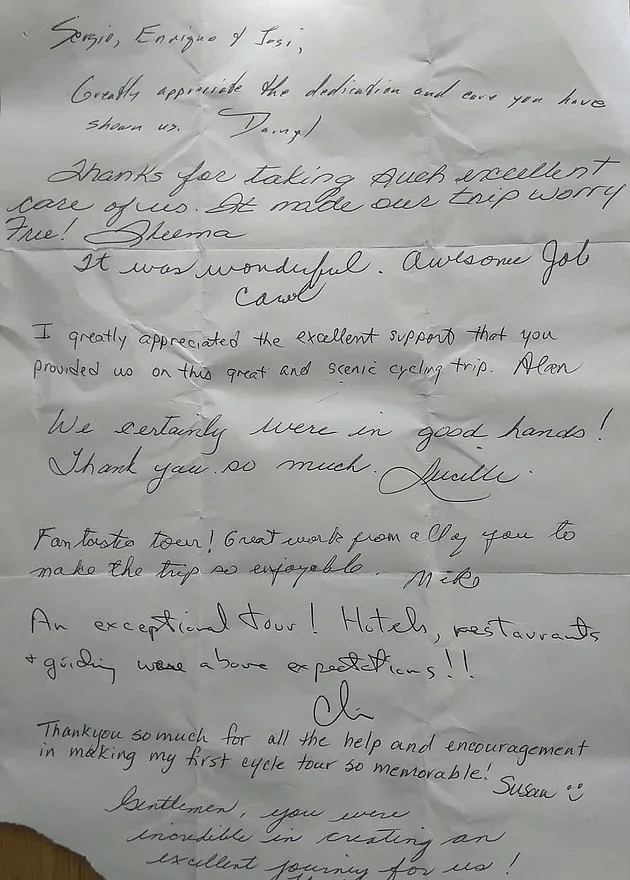 Sergio, Enrique & Josi,
Greatly appreciate the dedication and care you have
shown us. Darryl
Thanks for taking such excellent
care of us. It made our trip worry
Free! Sheema
It was wonderful. Awesome Job
Carol
I greatly appreciated the excellent support that you
provided us on this great and scenic cycling trip. Alan
We certainly were in good hands!
Thank you so much. Lucille
Fantastic tour! Great work from all of you to
make the trip so enjoyable. Mike
An exceptional tour! Hotels, restaurants
+ guiding were above expectations!!
Thankyou so much for all the help and encouragement
in making my first cycle tour so memorable!
Susan
Gentlemen, you were
incredible in creating an
excellent journey for us!